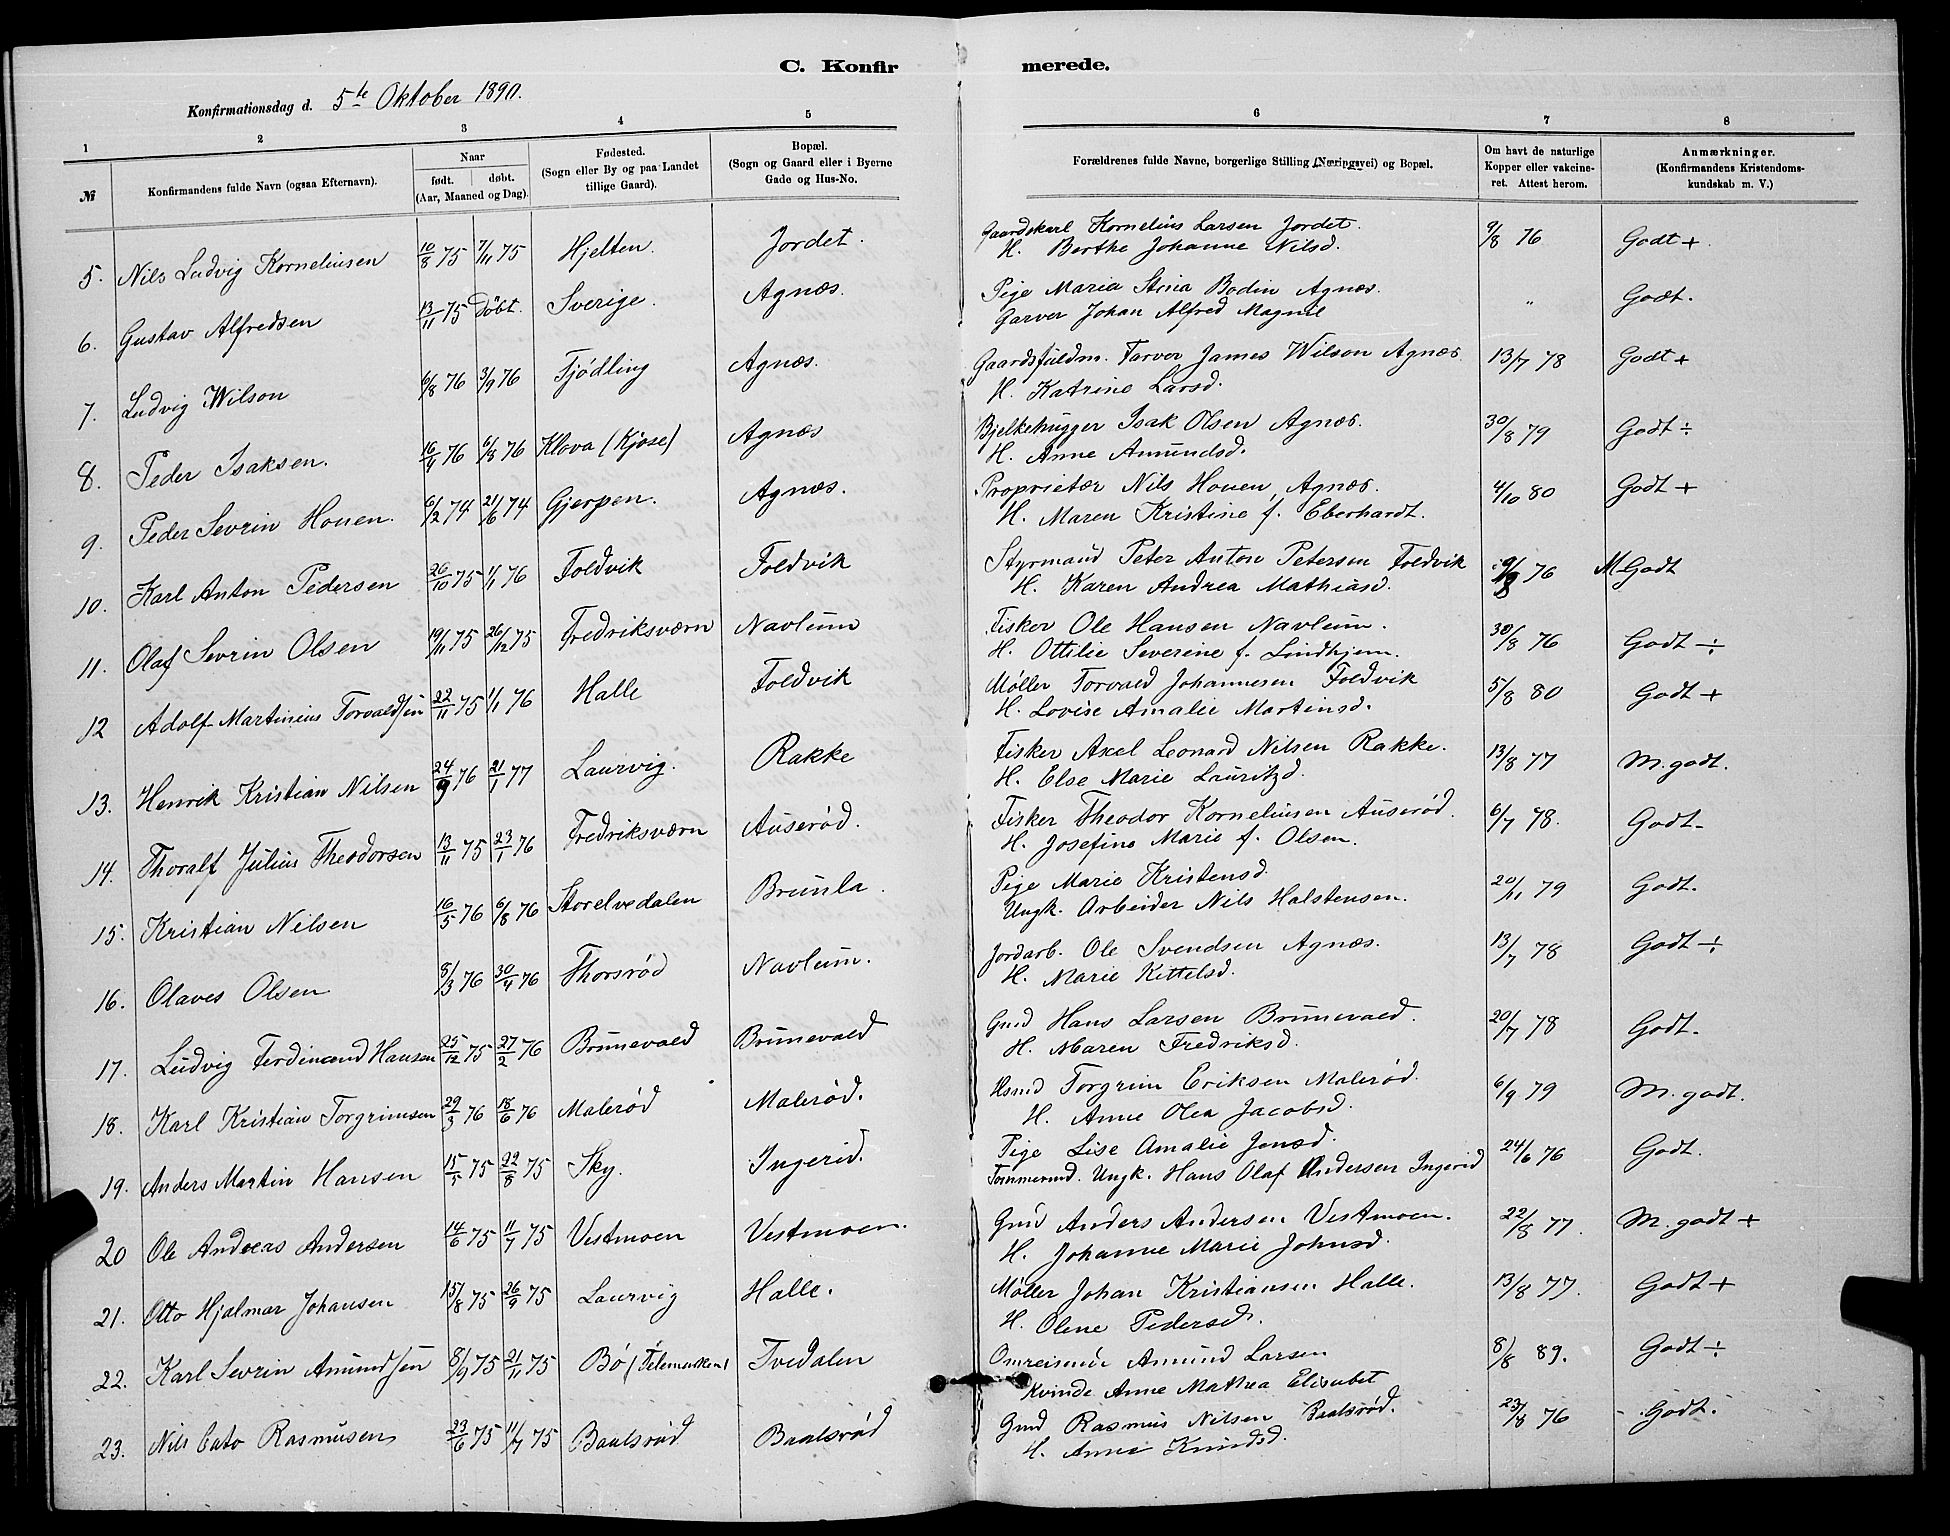 C. Konfirmerede.
Konfirmationsdag d. 5te Oktober 1890.
1 2 3 4 5 6 7 8
№ Konfirmandens fulde Navn (ogsaa Efternavn). Naar født. døbt. (Aar, Maaned og Dag). Fødested. (Sogn eller By og paa Landet tillige Gaard). Bopæl. (Sogn og Gaard eller i Byerne Gade og Hus-No. Forældrenes fulde Navne, borgerlige Stilling (Næringsvei) og Bopæl. Om havt de naturlige Kopper eller vakcineret. Attest herom. Anmærkninger. (Konfirmandens Kristendomskundskab m. V.)
5. Nils Ludvig Korneliusen 10/8 75 7/11 75 Hjelten. Jordet. Gaardskarl Kornelius Larsen Jordet. 9/8 76 Godt +.
H. Berthe Johanne Nilsd.
6. Gustav Alfredsen 13/11 75 Døbt. Sverige. Agnæs. Pige Maria Stina Bodin Agnæs. " Godt.
Garver Johan Alfred Magnil
7. Ludvig Wilson 6/8 76 3/9 76 Tjødling Agnæs. Gaardsfuldm. Farver James Wilson Agnæs 13/7 78 Godt +
H. Katrine Larsd.
8. Peder Isaksen. 16/4 76 6/8 76 Klova (Kjose) Agnæs Bjelkehugger Isak Olsen Agnæs. 30/8 79 Godt ÷
H. Anne Amundsd.
9. Peder Sevrin Houen. 6/12 74 21/6 74 Gjerpen. Agnæs. Proprietær Nils Houen, Agnæs. 4/10 80 Godt +
H. Maren Kristine f. Eberhardt.
10. Karl Anton Pedersen 26/10 75 1/1 76 Foldvik Foldvik Styrmand Peter Anton Petersen Foldvik 76 M Godt
H. Karen Andrea Mathiasd.
11. Olaf Sevrin Olsen 19/11 75 26/12 75 Fredriksværn Navlum Fisker Ole Hansen Navlum. 30/8 76 Godt ÷
H. Ottilie Severine f. Lindhjem.
12 Adolf Martinius Torvaldsen 22/11 75 1/1 76 Halle Foldvik Møller Torvald Johannesen Foldvik 5/8 80 Godt +
H. Lovise Amalie Martinsd.
13. Henrik Kristian Nilsen 24/9 76 21/1 77 Laurvig. Rakke Fisker Axel Leonard Nilsen Rakke. 13/8 77 M. godt.
H. Else Marie Lauritzd.
14. Thoralf Julius Theodorsen 13/11 75 23/1 76 Fredriksværn Auserød. Fisker Theodor Korneliusen Auserød. 6/7 78. Godt.
H. Josefine Marie f. Olsen.
15. Kristian Nilsen 16/5 76 6/8 76 Storelvedalen Brunla. Pige Marie Kristensd. 20/11 79 Godt.
Ungk. Arbeider Nils Halstensen.
16. Olaves Olsen 8/3 76 30/4 76 Thorsrød Navlum. Jordarb. Ole Svendsen Agnæs. 13/7 78 Godt ÷
H. Marie Kittelsd.
17. Ludvig Ferdinand Hansen 25/12 75 27/2 76 Brunevald Brunevald Gmd Hans Larsen Brunevald. 20/7 78 Godt.
H. Maren Fredriksd.
18. Karl Kristian Torgrimsen 29/3 76 18/6 76 Malerød Malerød. Hsmd Torgrim Eriksen Malerød. 6/9 79 M. godt.
H. Anne Olea Jacobsd.
19. Anders Martin Hansen 15/5 75 22/8 75 Sky. Ingerid. Pige Lise Amalie Jonsd. 24/6 76 Godt.
Tømmermd. Ungk. Hans Olaf Andersen Ingerid
20 Ole Andreas Andersen 14/6 75 11/7 75 Vestmoen Vestmoen. Gmd Anders Andersen Vestmoen. 22/8 77. M. godt +
H. Johanne Marie Johnsd.
21. Otto Hjalmar Johansen 15/8 75 26/9 75 Laurvig Halle. Møller Johan Kristiansen Halle. 13/8 77. Godt +
H. Olene Pedersd.
22. Karl Sevrin Amundsen 8/9 75 21/11 75 Bø (Telemarken) Tvedalen Omreisende Amund Larsen 8/8 89. Godt ÷
Kvinde Anne Mathea Elisabet
23. Nils Cato Rasmusen 23/6 75 11/7 75 Baalsrød Baalsrød Gmd Rasmus Nilsen Baalsrød. 23/8 76 Godt.
H. Anne Knudsd.